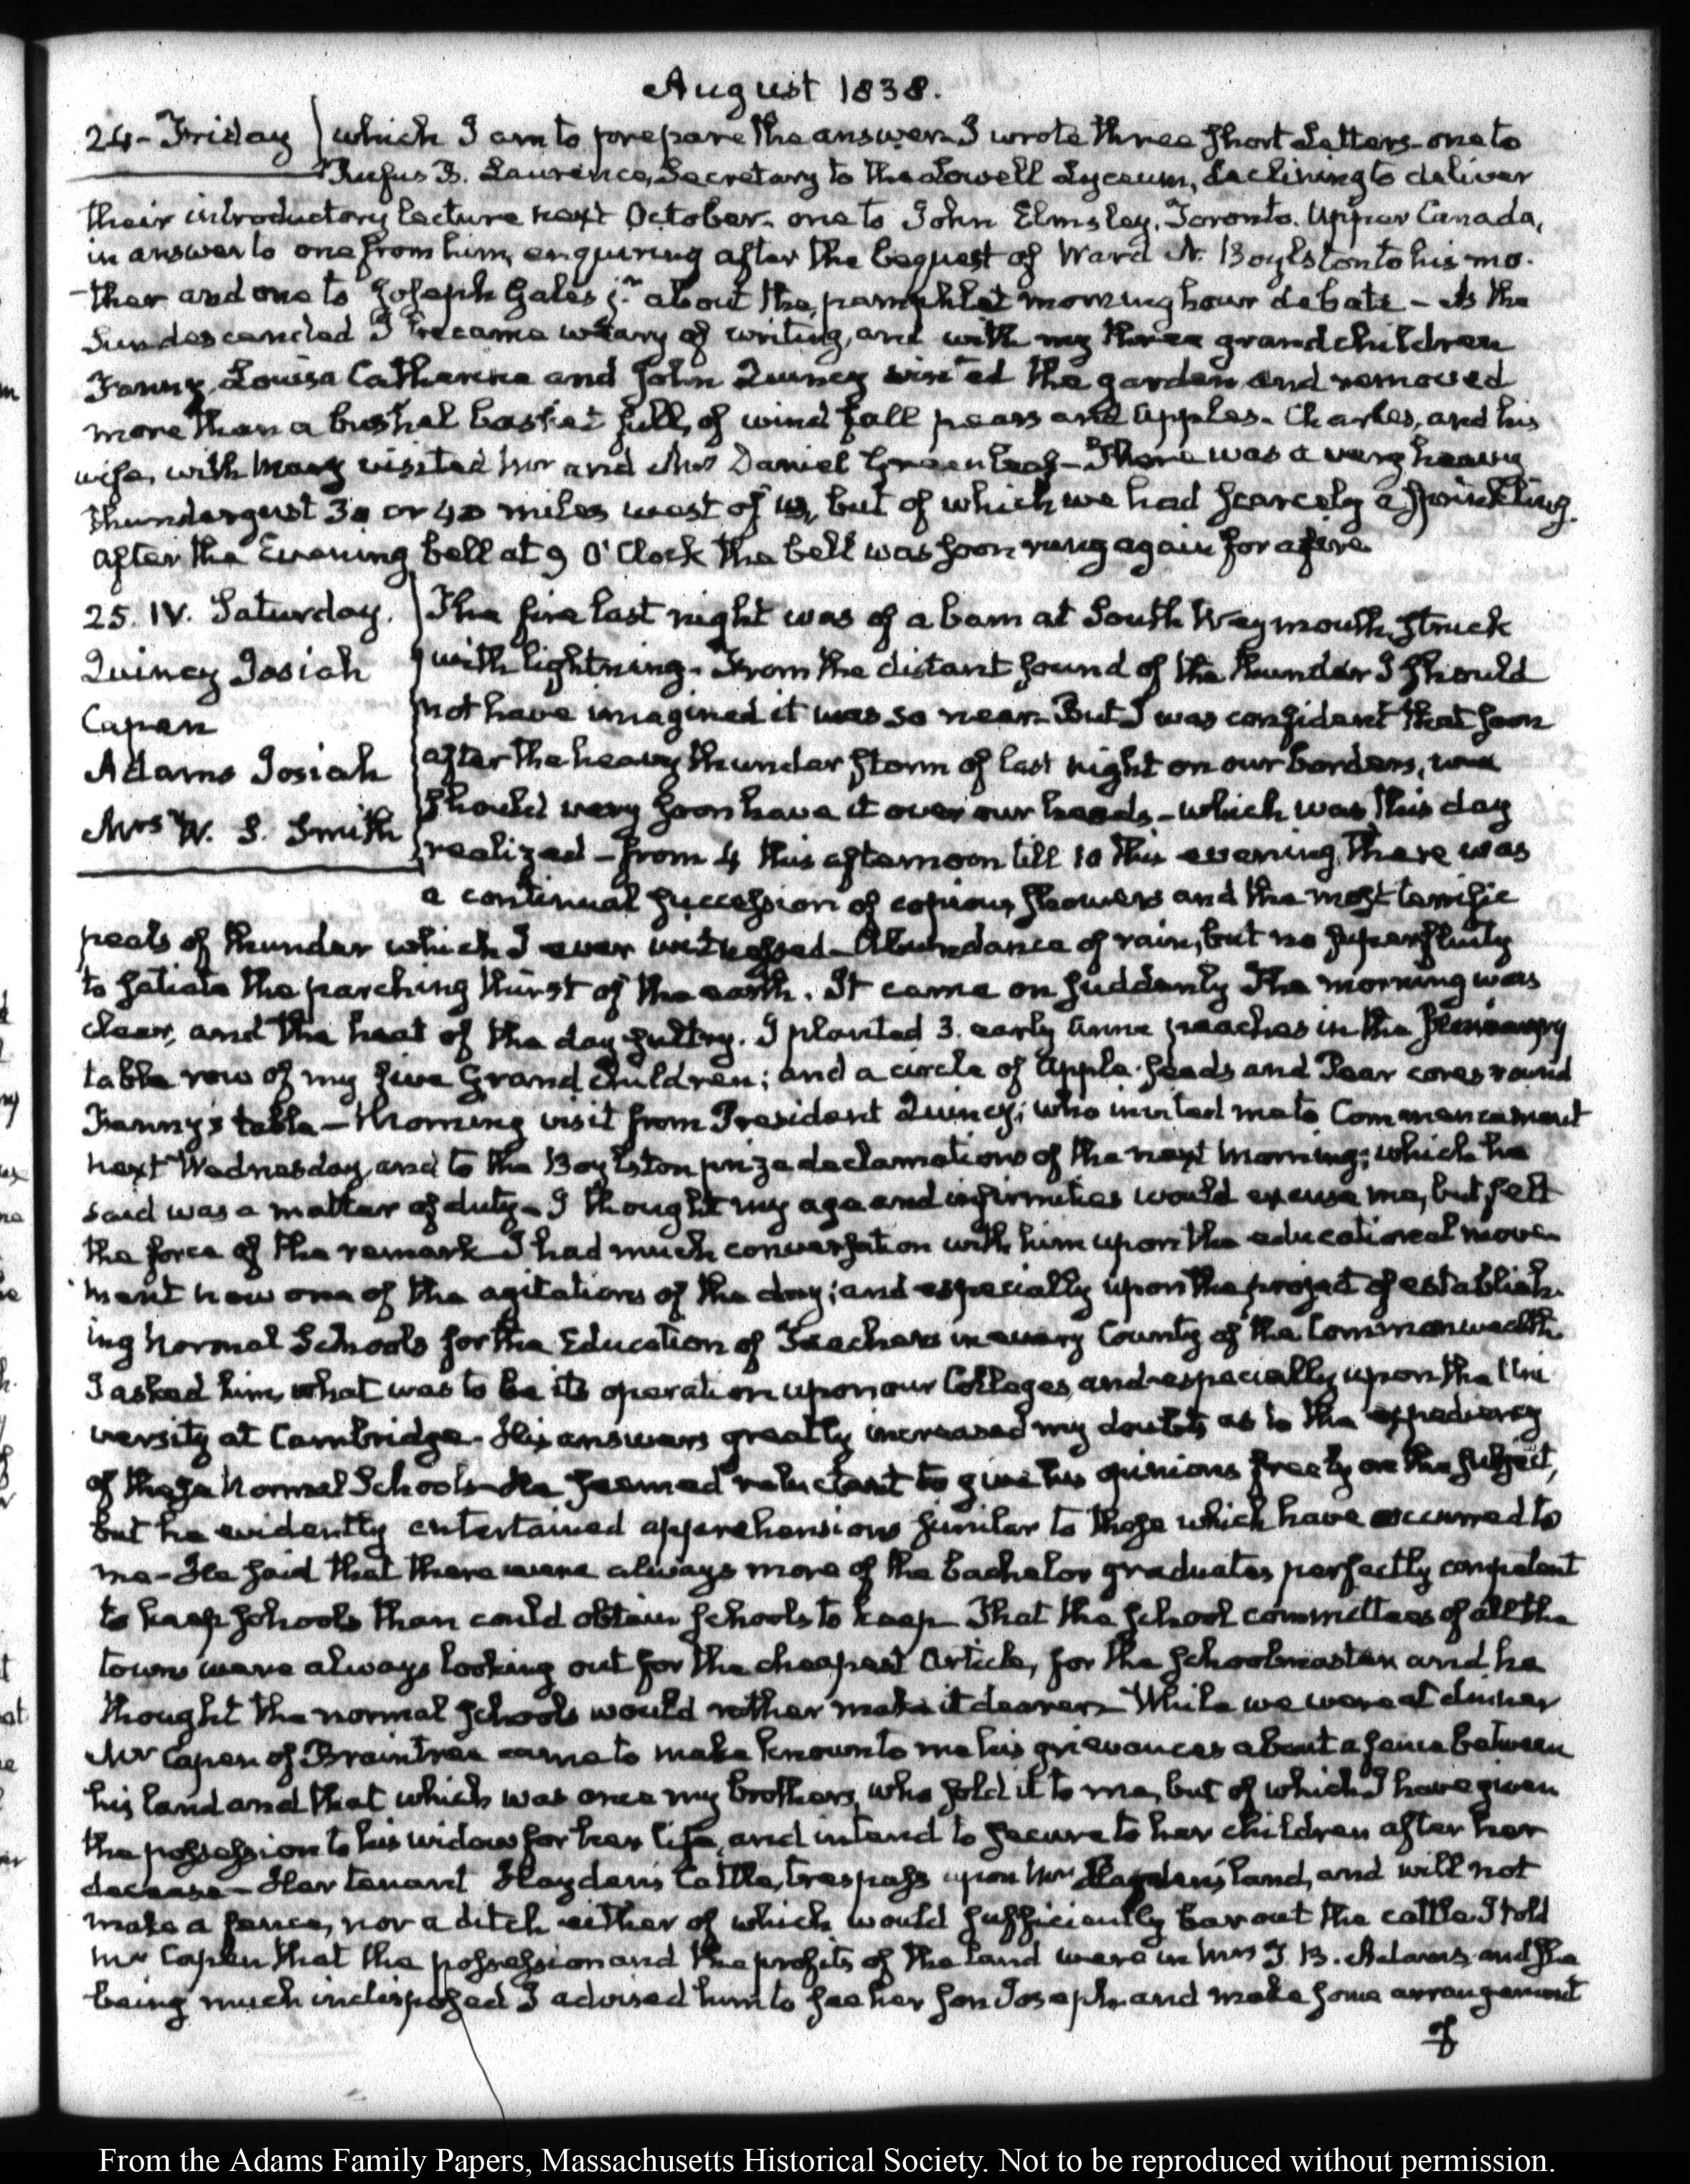 August 1838.
24 - Friday which I am to prepare the answer. I wrote three short Letters - one to
Rufus B. Laurence, Secretary to the Lowell Lyceum, declining to deliver
their introductory lecture next October - one to John Elmsley, Toronto. Upper Canada,
in answer to one from him, enquiring after the bequest of Ward N. Boylston to his mo-
-ther and one to Joseph Gales jr. about the pamphlet morning hour debate - As the
Sun descended I became weary of writing, and with my three grandchildren
Fanny, Louisa Catherine and John Quincy visited the garden and removed
more than a bushel basket full, of wind fall pears and apples. Charles, and his
wife, with Mary visited Mr and Mrs Daniel Greenleaf - There was a very heavy
thundergust 30 or 40 miles west of us, but of which we had scarcely a sprinkling.
After the Evening bell at 9 O'Clock the bell was soon rung again for a fire
25. IV. Saturday. The fire last night was of a barn at South Weymouth, struck
Quincy Josiah with lightning - From the distant sound of the thunder I should
Capen not have imagined it was so near. But I was confident that soon
Adams Josiah after the heavy thunder storm of last night on our borders, we
Mrs W. S. Smith should very soon have it over our heads - which was this day
realized - from 4 this afternoon till 10 this evening, there was
a continual succession of copious showers and the most terrific
peals of thunder which I ever witnessed - Abundance of rain, but no superfluity
to satiate the parching thirst of the earth. It came on suddenly. The morning was
clear, and the heat of the day sultry. I planted 3. early Anne peaches in the
table row of my five Grand Children; and a circle of Apple-seeds and Pear cores round
Fanny's table - Morning visit from President Quincy; who invited me to Commencement
next Wednesday, and to the Boylston prize declamations of the next morning; which he
said was a matter of duty - I thought my age and infirmities would excuse me, but felt
the force of the remark - I had much conversation with him upon the educational move-
ment now one of the agitations of the day; and especially upon the project of establish-
ing Normal Schools for the Education of Teachers in every County of the Commonwealth
I asked him, what was to be its operation upon our Colleges, and especially upon the Uni
versity at Cambridge. His answers greatly increased my doubts as to the expediency
of these Normal Schools - He seemed reluctant to give his opinions freely on the subject,
but he evidently entertained apprehensions similar to those which have occurred to
me - He said that there were always more of the bachelor graduates perfectly competent
to keep schools than could obtain schools to keep - That the school committees of all the
towns were always looking out for the cheapest Article, for the schoolmaster and he
thought the normal schools would rather make it dearer - While we were at dinner
Mr Capen of Braintree came to make known to me his grievances about a fence between
his land and that which was once my brothers, who sold it to me, but of which I have given
the possession to his widow for her life, and intend to secure to her children after her
decease - Her tenant Hayden's Cattle, trespass upon Mr land, and will not
make a fence, nor a ditch either of which would sufficiently bar out the cattle. I told
Mr Capen that the possession and the profits of the land were in Mrs T. B. Adams and she
being much indisposed I advised him to see her son Joseph and make some arrangement
From the Adams Family Papers, Massachusetts Historical Society. Not to be reproduced without permission.